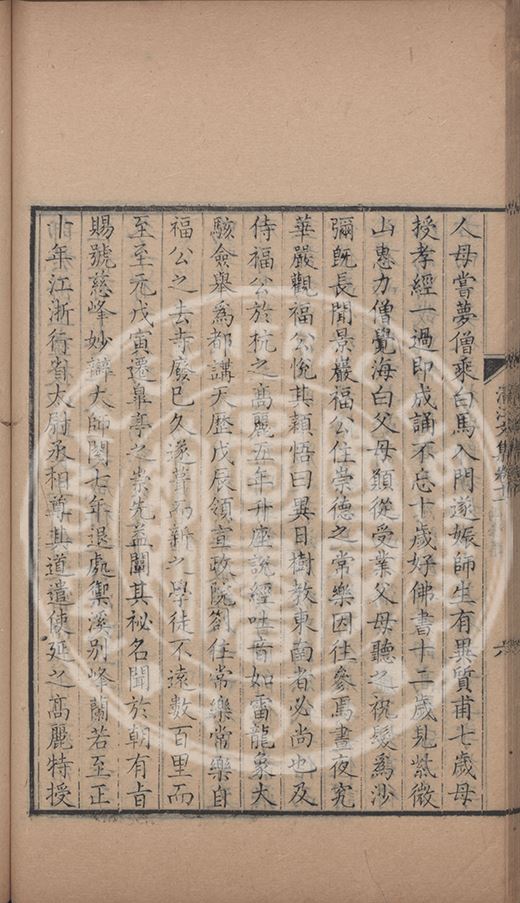 人母嘗夢僧乘白馬入門遂娠師生有異質甫七歲母
授孝經一過即成誦不忘十歲好佛書十二歲見紫微
山惠力僧覺海白父母願從受業父母聽之祝髮為沙
彌既長聞景巖福公住崇德之常樂因往參焉晝夜究
華嚴觀福公悅其穎悟曰異日樹教東南者必尚也及
侍福公於杭之髙麗五年升座說經吐音如雷龍象大
駭僉舉為都講天歷戊辰領宣政院劄住常樂常樂自
福公之去寺廢已久遂葺而新之學徒不遠數百里而
至至元戊寅遷臯亭之崇先益闡其祕名聞於朝有旨
賜號慈峰妙辯大師閱七年退處禦溪别峰蘭若至正
十年江浙行省太尉丞相尊其道遣使延之髙麗特授